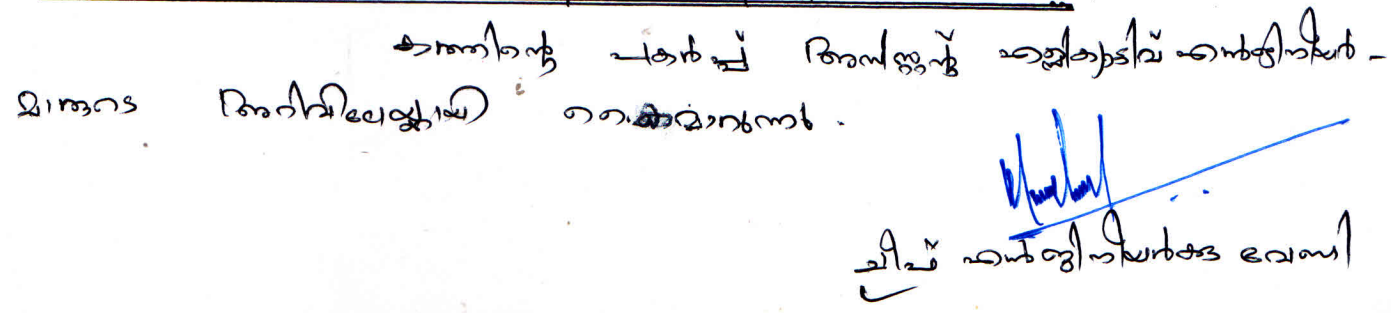 കത്തിന്റെ പകർപ്പ് അസിസ്റ്റന്റ് എക്സിക്യൂട്ടീവ് എൻജിനിയർ -
മാരുടെ അറിവിലേയ്ക്കായി കൈമാറുന്നു .
ചീഫ് എൻജിനിയർക്കു വേണ്ടി